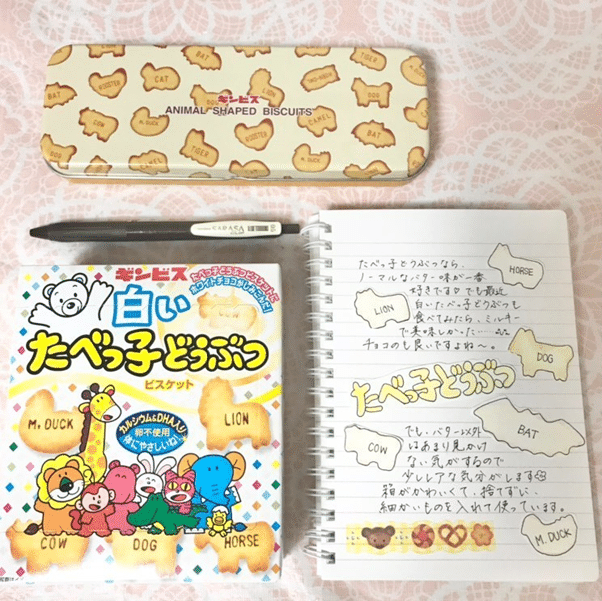 BAT
CAT
ROOSTER
LION
DOG
ギンビス
ANIMAL SHAPED BISCUITS
COW
M. DUCK
TIGER
ROOSTER
CAMEL
BAT
CAMEL
M. DUCK
DOG
ギンビス
たべっ子どうぶつビスケットに
ホワイトチョコがしみこんだ!
白い
たべっ子どうぶつ
ビスケット
M. DUCK
LION
カルシウム&DHA入り
卵不使用
体にやさしいね!
COW
DOG
HORSE
たべっ子どうぶつなら、
ノーマルなバター味が一番
好きですが でも最近
白いたべっ子どうぶつも
食べてみたら、ミルキー
で美味しかった…
チョコのも良いですよね〜。
HORSE
LION
DOG
たべっ子どうぶつ
BAT
COW
でも、バター以外
はあまり見かけ
ない気がするので
少しレアな気分がします
箱がかわいくて、捨てずに、
細かいものを入れて使っています。
M. DUCK